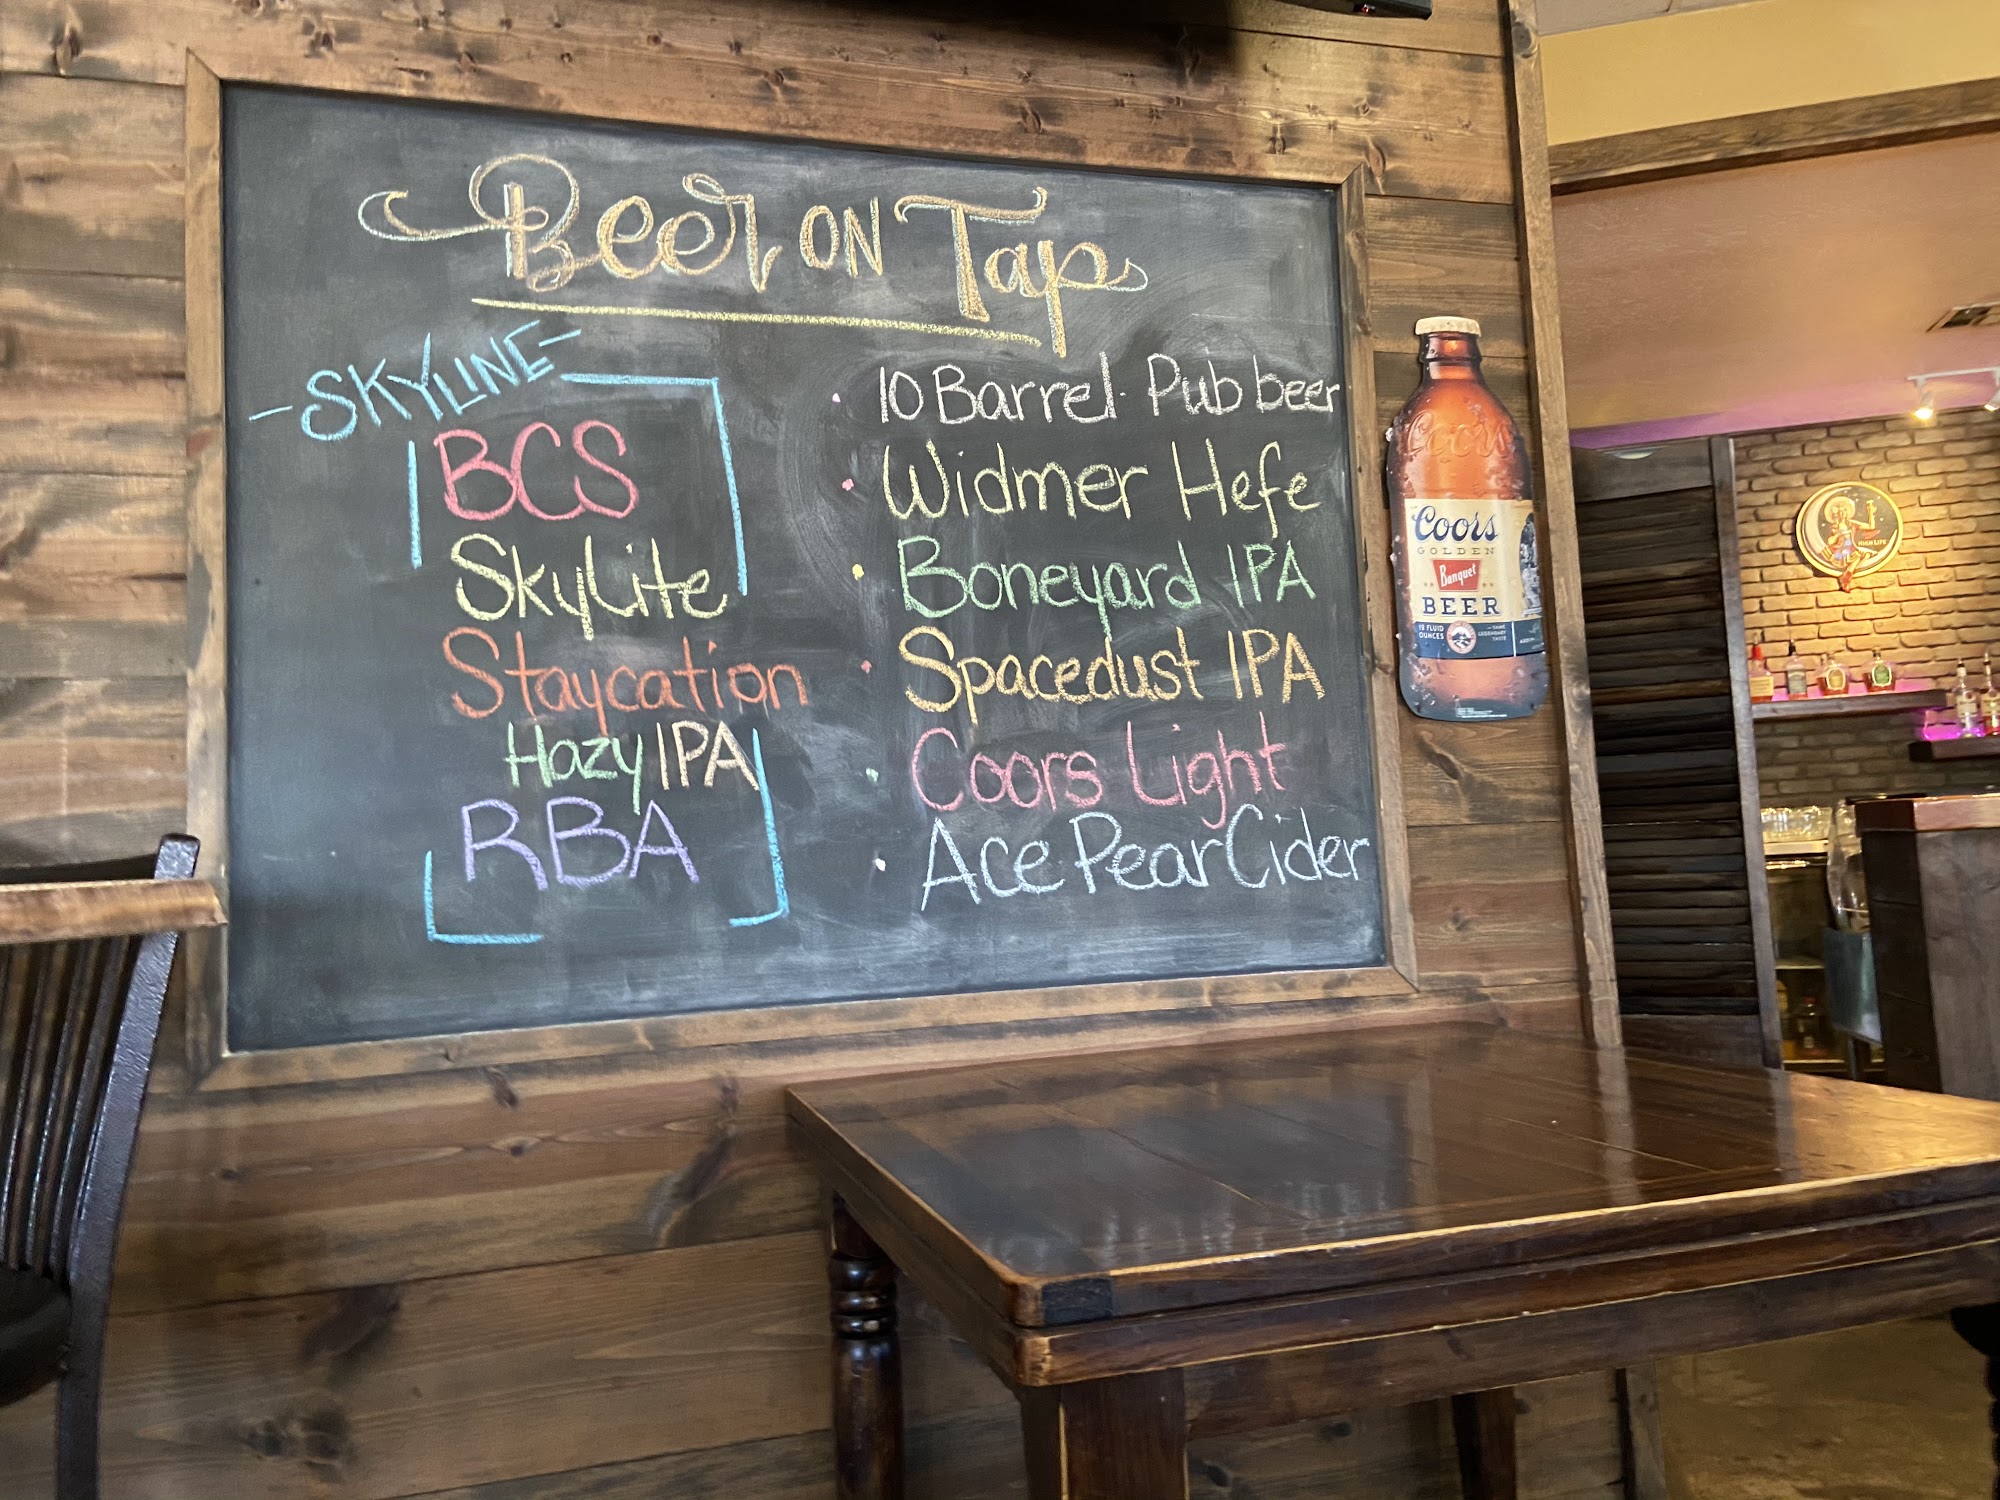 Beer ON Tap
-SKYLINE-
BCS
SkyLite
Staycation
Hazy IPA
RBA
10 Barrel Pub beer
Widmer Hefe
Boneyard IPA
Spacedust IPA
Coors Light
Ace Pear Cider
Coors
Coors
GOLDEN
Banquet
BEER
12 FLUID
OUNCES
HIGH LIFE